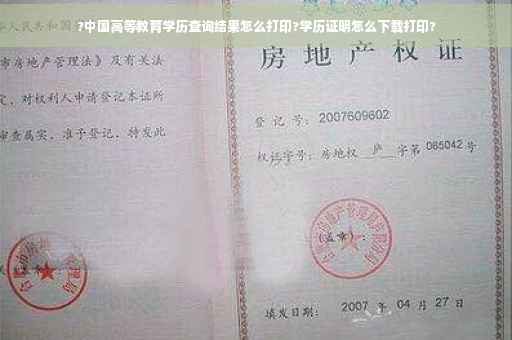 ?中国高等教育学历查询结果怎么打印?学历证明怎么下载打印?
人民共和国
市房地产管理法》及有关
定，对权利人申请登记本证所
审查属实，准予登记，特发此
房地产权证
登记号：2007609602
权证字号：房地权 庐 字第 085042 号
(盖章)：
填发日期： 2007 年 04 月 27 日